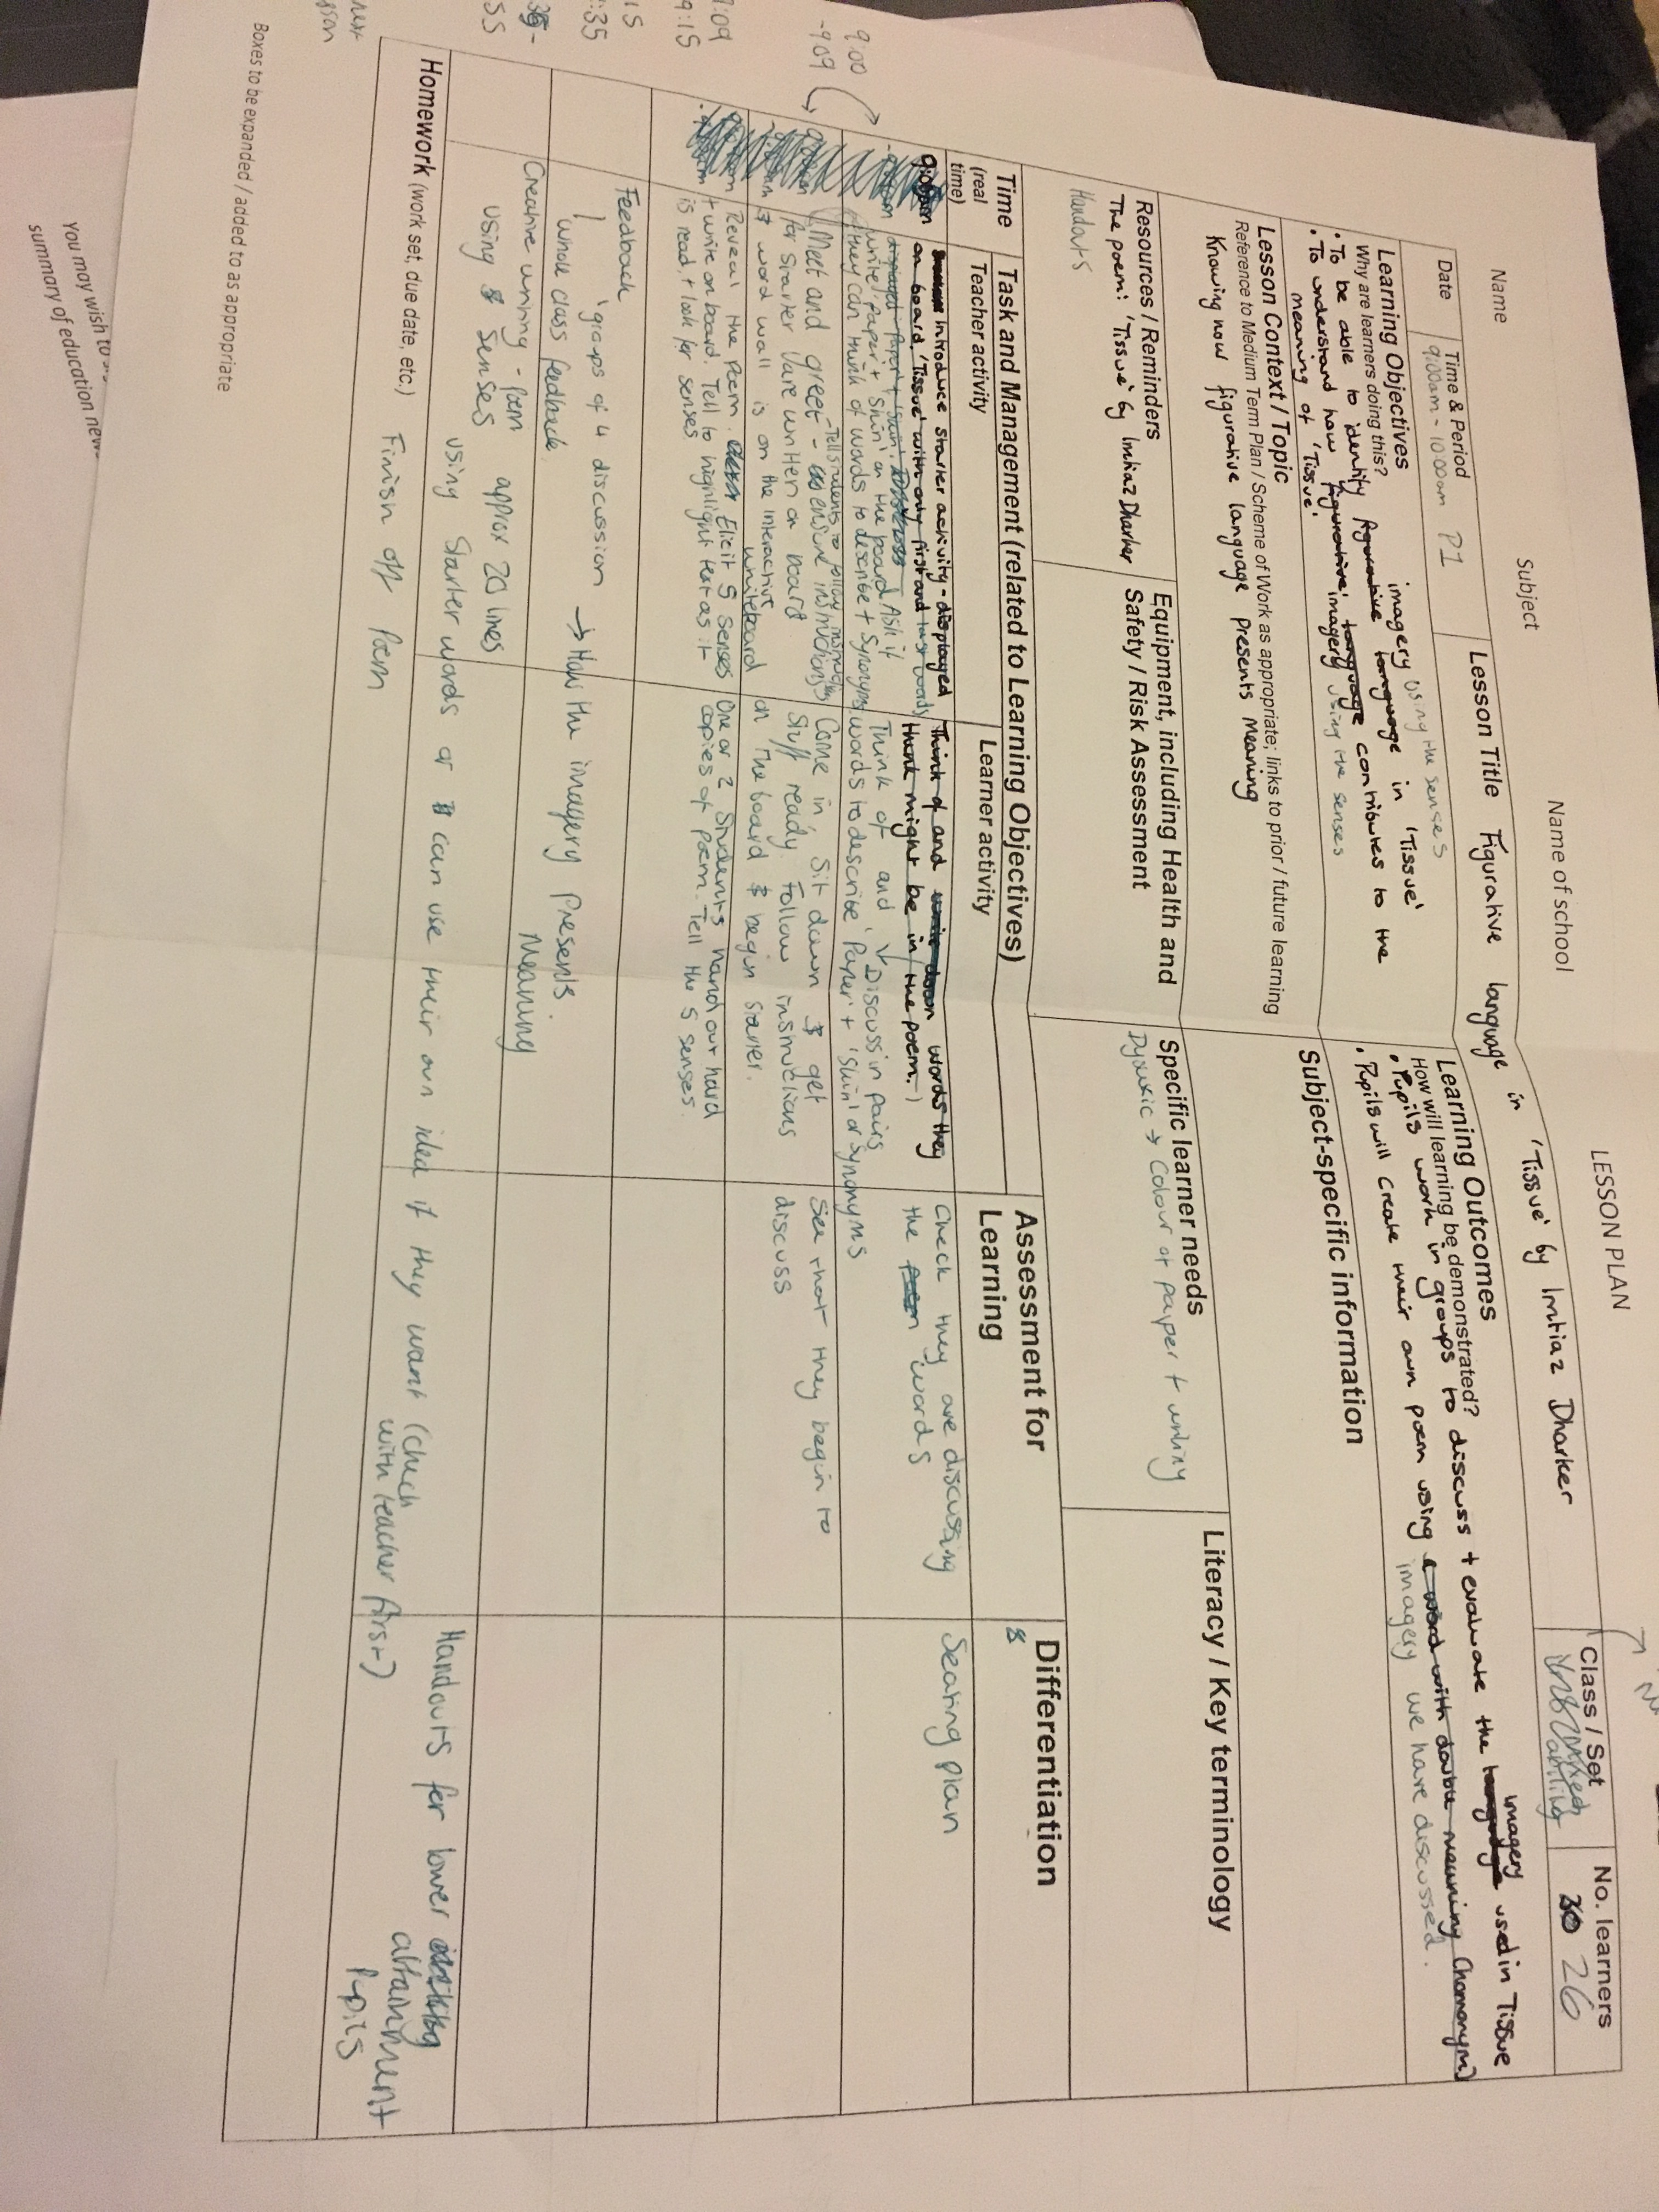 LESSON PLAN
Name
Subject
Name of school
Class / Set
No. learners
30 26
Date
Time & Period
9:00am - 10:00am P1
Lesson Title Figurative language in 'Tissue' by Imtiaz Dharker
Learning Objectives
Why are learners doing this?
imagery using the senses
• To be able to identify figurative language in 'Tissue'
• To understand how figurative imagery language contributes to the
meaning of 'Tissue'. using the senses
Learning Outcomes
How will learning be demonstrated?
imagery
• Pupils work in groups to discuss + evaluate the language used in Tissue
• Pupils will create their own poem using a word with double meaning (homonym)
imagery we have discussed.
Lesson Context / Topic
Reference to Medium Term Plan / Scheme of Work as appropriate; links to prior / future learning
Knowing how figurative language presents meaning
Subject-specific information
Resources / Reminders
The poem: 'Tissue' by Imtiaz Dharker
Handouts
Equipment, including Health and
Safety / Risk Assessment
Specific learner needs
Dyslexic → Colour of paper + writing
Literacy / Key terminology
Time
(real
time)
Task and Management (related to Learning Objectives)
Teacher activity
Learner activity
Assessment for
Learning
Differentiation
9:00
-909
introduce starter activity - displayed
on board 'Tissue' with only first and last words
displayed 'Paper' + 'Skin'. Discuss
write 'Paper' + 'Skin' on the board. Ask if
they can think of words to describe + Synonyms
Think of and write down words they
think might be in the poem.
Think of and Discuss in pairs
words to describe 'Paper' + 'Skin' or synonyms
Check they are discussing
the poem words
Seating plan
Meet and greet -
-Tell students to follow instructions
ensure instructions
for starter are written on board.
word wall is on the interactive
whiteboard
Come in, sit down & get
stuff ready. Follow instructions
on the board & begin starter.
See that they begin to
discuss
:09
9:15
Reveal the poem. Elicit 5 senses
+ write on board. Tell to highlight text as it
is read, + look for senses
One or 2 students hand out hard
copies of poem. Tell the 5 senses.
:15
:35
Feedback
groups of 4 discussion → How the imagery presents
Meaning
whole class feedback.
Creative writing - Poem approx 20 lines
using 5 senses using starter words or can use their own idea if they want (check
with teacher first)
Handouts for lower
attainment
Pupils
next
Homework (work set, due date, etc.) Finish off Poem
Boxes to be expanded / added to as appropriate
You may wish to
summary of education new